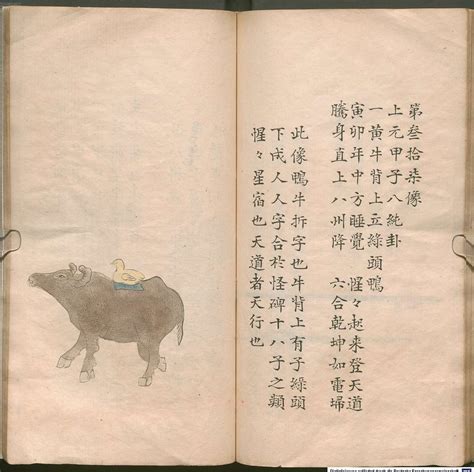 第叁拾柒像
上元甲子八純卦
一黄牛背上立綠頭鴨
寅卯年中方睡覺 惺々起來登天道
騰身直上八州降 六合乾坤如電埽
此像鴨牛拆字也牛背上有子綠頭
下成人人字合於怪碑十八子之類
惺々星宿也天道者天行也